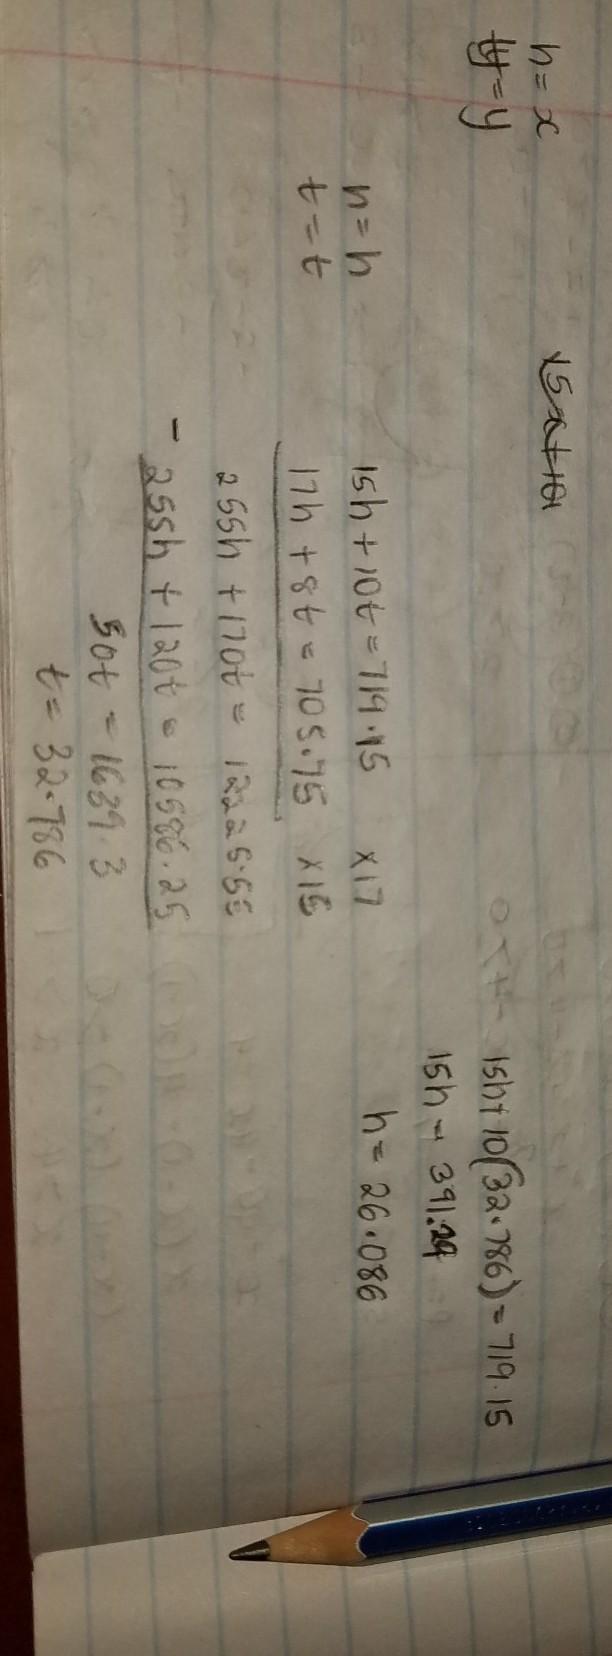 h = x
= y
15h + 10(32.786) = 719.15
15h = 391.29
h = h
t = t
15h + 10t = 719.15 ×17
17h + 8t = 705.75 ×15
255h + 170t = 12225.55
- 255h + 120t = 10586.25
50t = 1639.3
t = 32.786
h = 26.086